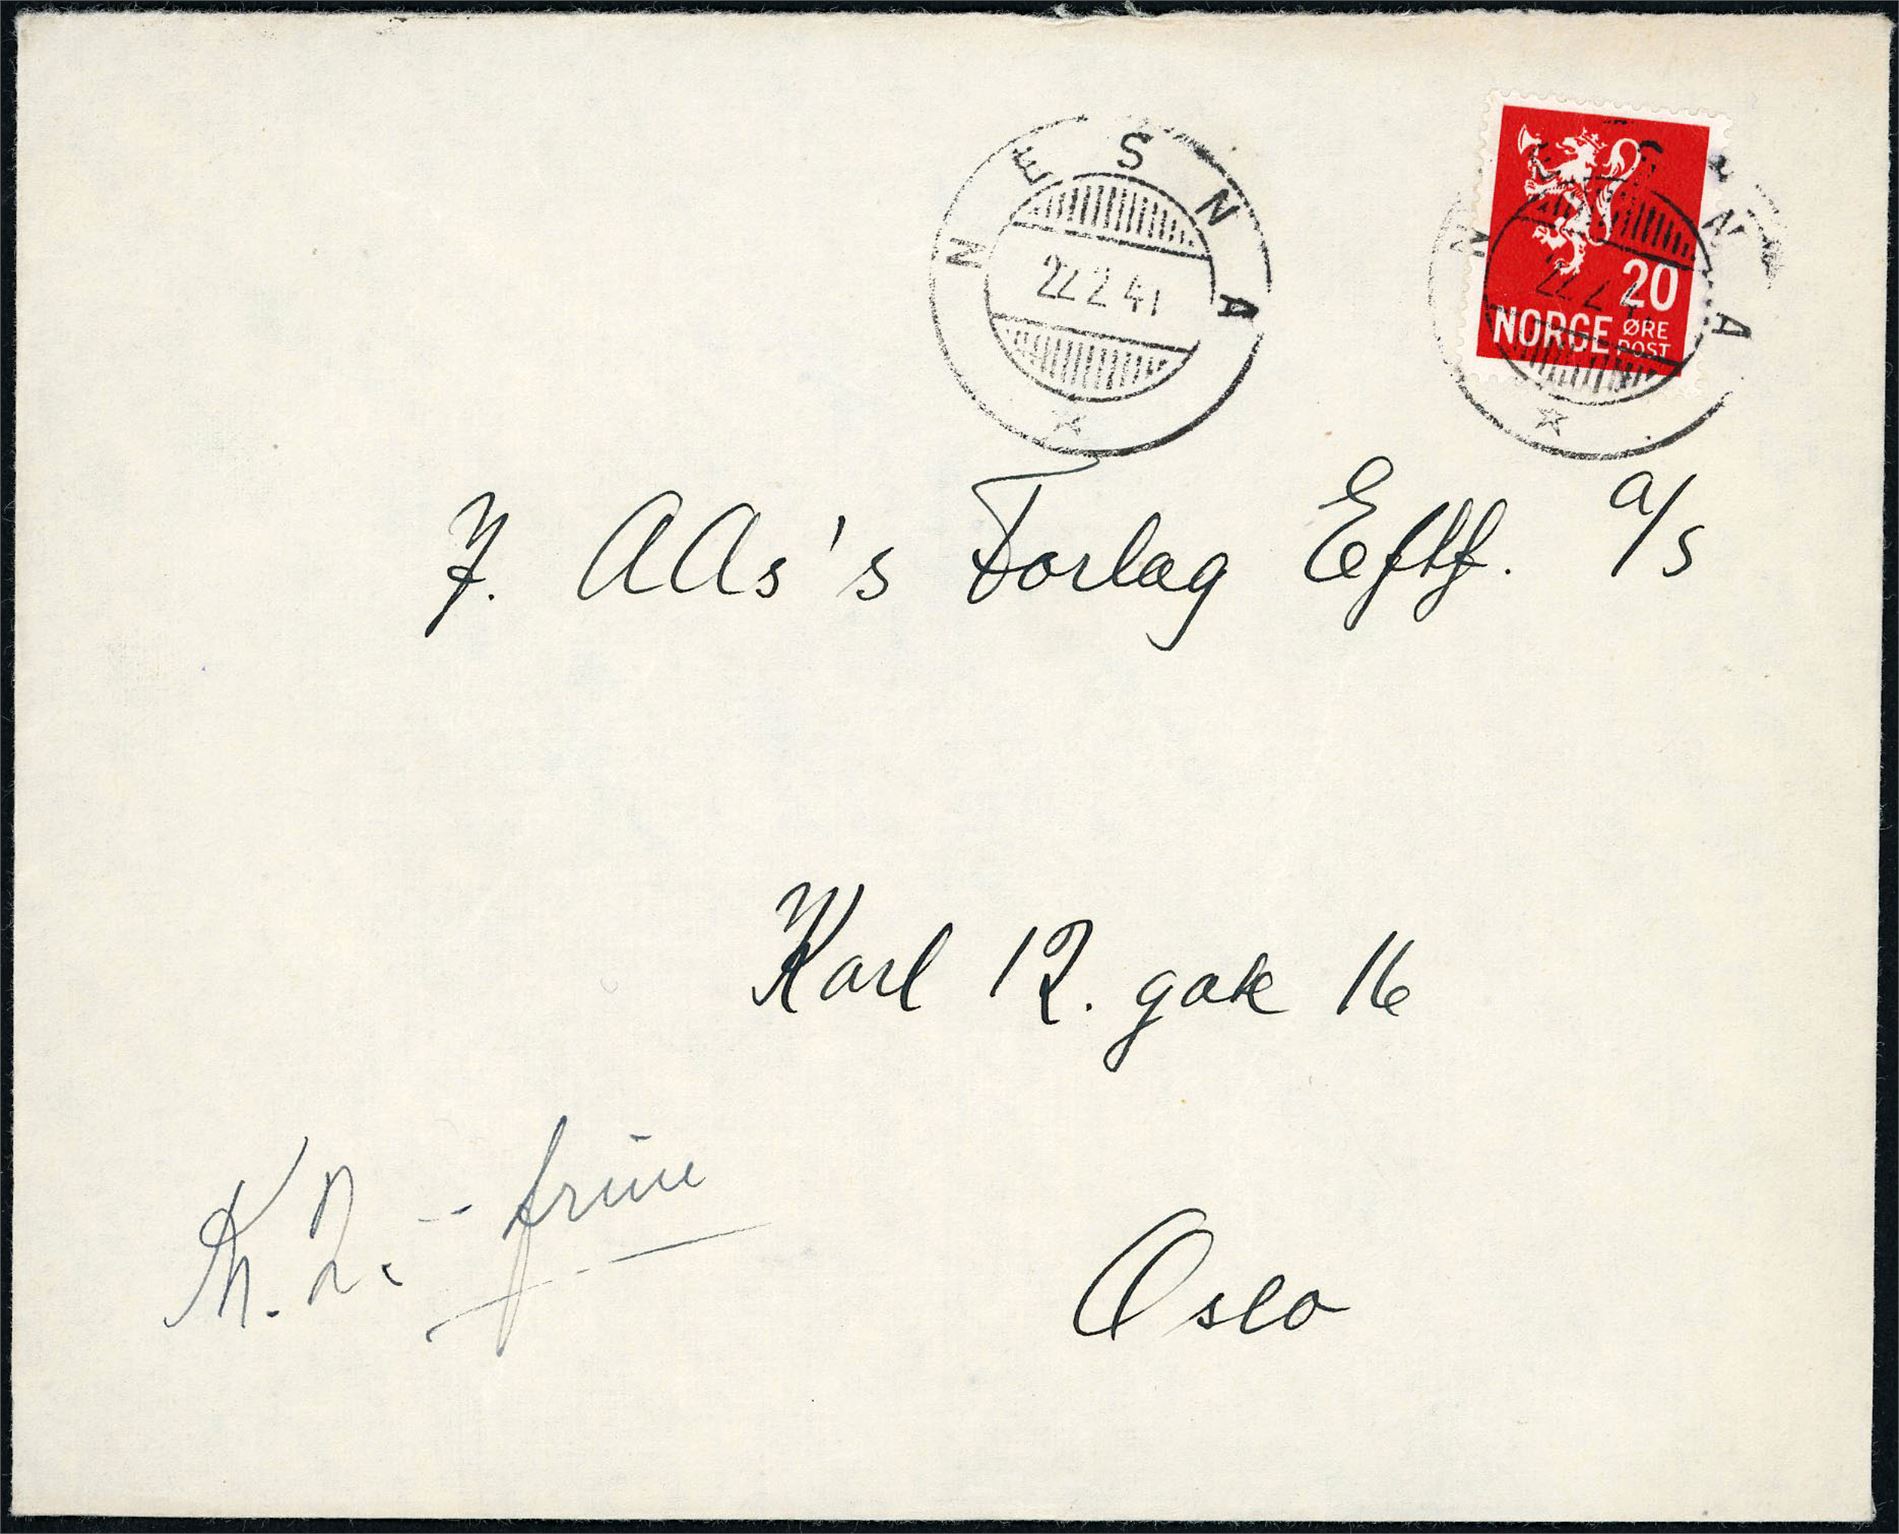 NESNA
22 2 41
NESNA
20
NORGE ØRE
POST
J. AAs's Forlag Eftf. a/s
Karl 12. gate 16
Kr. 2.- - frim
Oslo